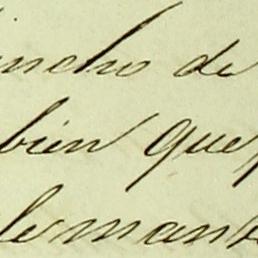 incho de
bien que
lemant